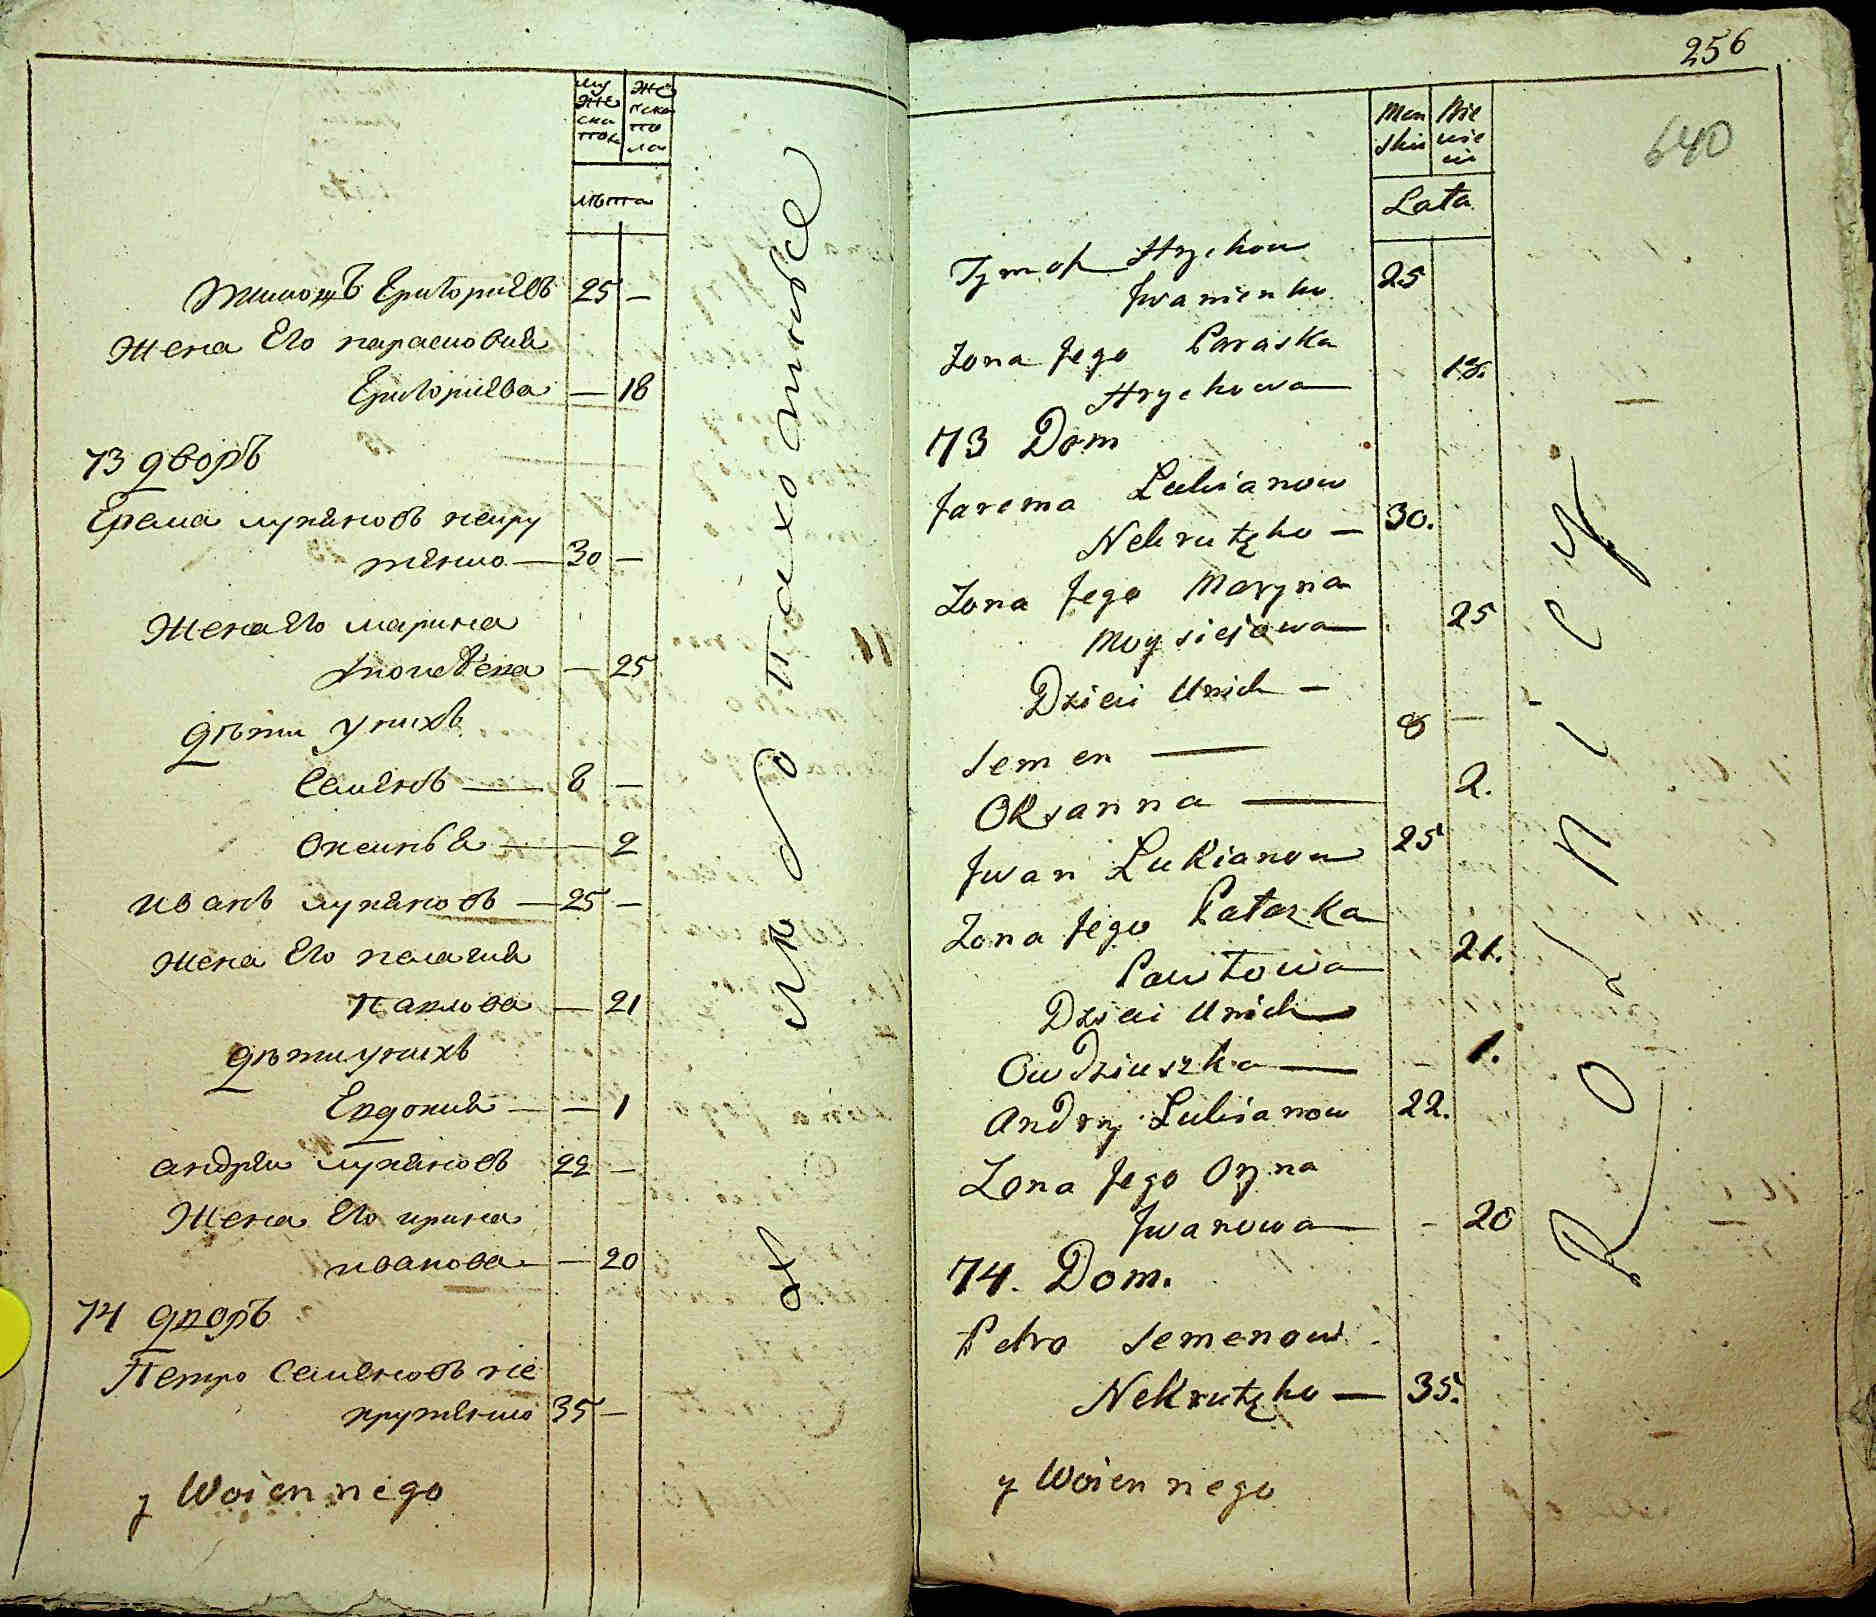 му
же
ска
пол
же
нска
по
ла
лѣта
Тимощъ Григориевъ 25 —
Жена Его парасковия
Григориева — 18
73 дворъ
Ерема лукяновъ некру
тенко — 30 —
Жена Его марина
— 25
дѣти у нихъ
Семенъ — 8 —
Оксинья — 2
иванъ лукяновъ — 25 —
Жена Его пелагия
Павлова — 21
дѣти у нихъ
Евдокия — — 1
андреи лукяновъ 22 —
Жена Его ирина
иванова — — 20
74 дворъ
Петро Семеновъ не
крутенко 35 —
y Woiennego
256
640
Men
skiu
Nie
wie
ciu
Lata
Tymoh Hryhou
Iwanienko 25
Zona Jego Paraska
Hryhowa 18.
73 Dom
Jarema Lukianow
Nekrutęko — 30.
Zona Jego Maryna
Moysiejowa — 25
Dzieci Unich —
Semen — 8 —
Oksanna — 2.
Jwan Lukianow 25
Zona Jego Pałazka
Pawłowa 21.
Dzieci Unich
Owdziuszka — - 1.
Andry Lukianow 22.
Zona Jego Oryna
Jwanowa — - 20
74. Dom.
Petro Semenow
Nekrutęko — 35.
y Woiennego
Rolnicy